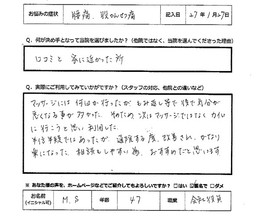 お悩みの症状 腰痛、股かんせつ痛 記入日 27年 1月27日
Q. 何が決め手となって当院を選びましたか？（他院ではなく、当院を選んでくださった理由）
口コミと 家に近かった所
Q. 実際にご利用してみていかがですか？（スタッフの対応、他院との違いなど）
マッサージには 何回か行ったが もみ返し等で 後で気分が
悪くなる事が 多かった。 そのため 次はマッサージではなく カイロ
に行こうと思い 利用した。
半信半疑ではあったが 通院する度、改善され、かなり
楽になった。 相談もしやすい為、おすすめだと思います
※ あなた様の声を、ホームページなどでご紹介してもよろしいですか？ □はい □匿名で □ダメ
お名前 M.S 年齢 47 職業 会社役員
(イニシャル可)